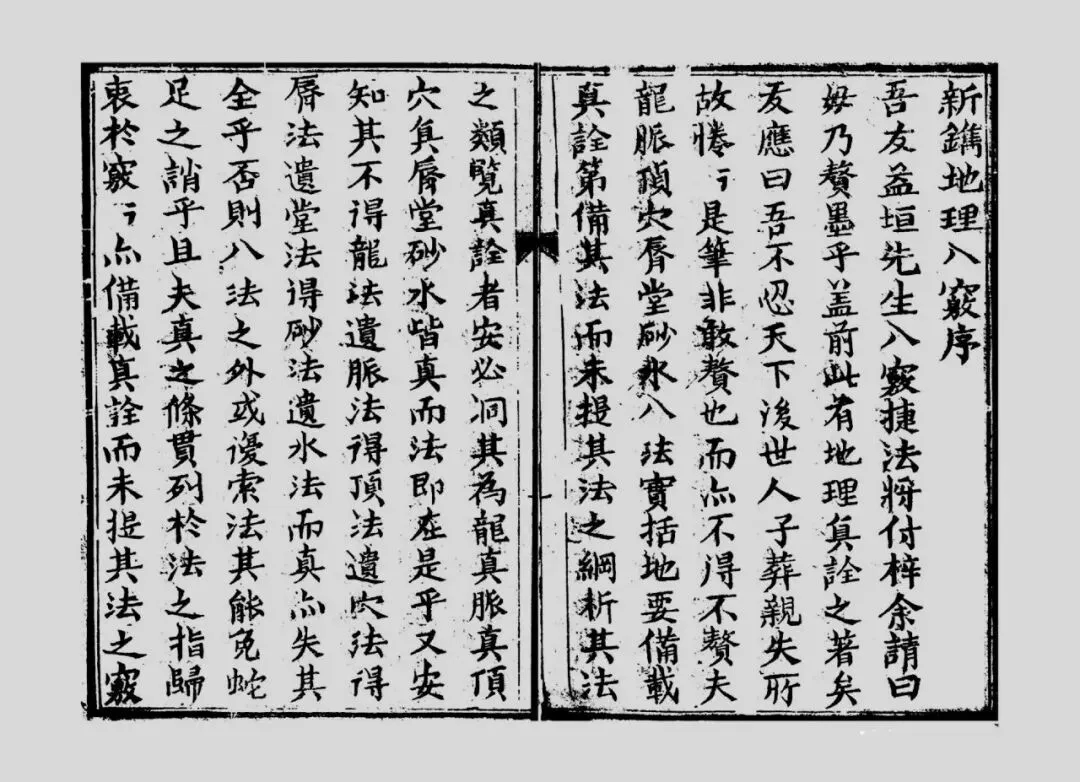 新鐫地理八竅序
吾友益垣先生八竅捷法將付梓余請曰
毋乃贅墨乎盖前此有地理真詮之著矣
友應曰吾不忍天下後世人子葬親失所
故惓〻是筆非敢贅也而亦不得不贅夫
龍脈頂穴唇堂砂水八法實括地要備載
真詮第備其法而未提其法之綱析其法
之類覽真詮者安必洞其為龍真脈真頂
穴真唇堂砂水皆真而法即在是乎又安
知其不得龍法遺脈法得頂法遺穴法得
唇法遺堂法得砂法遺水法而真亦失其
全乎否則八法之外或謾索法其能免蛇
足之誚乎且夫真之條貫列於法之指歸
衷於竅〻亦備載真詮而未提其法之竅